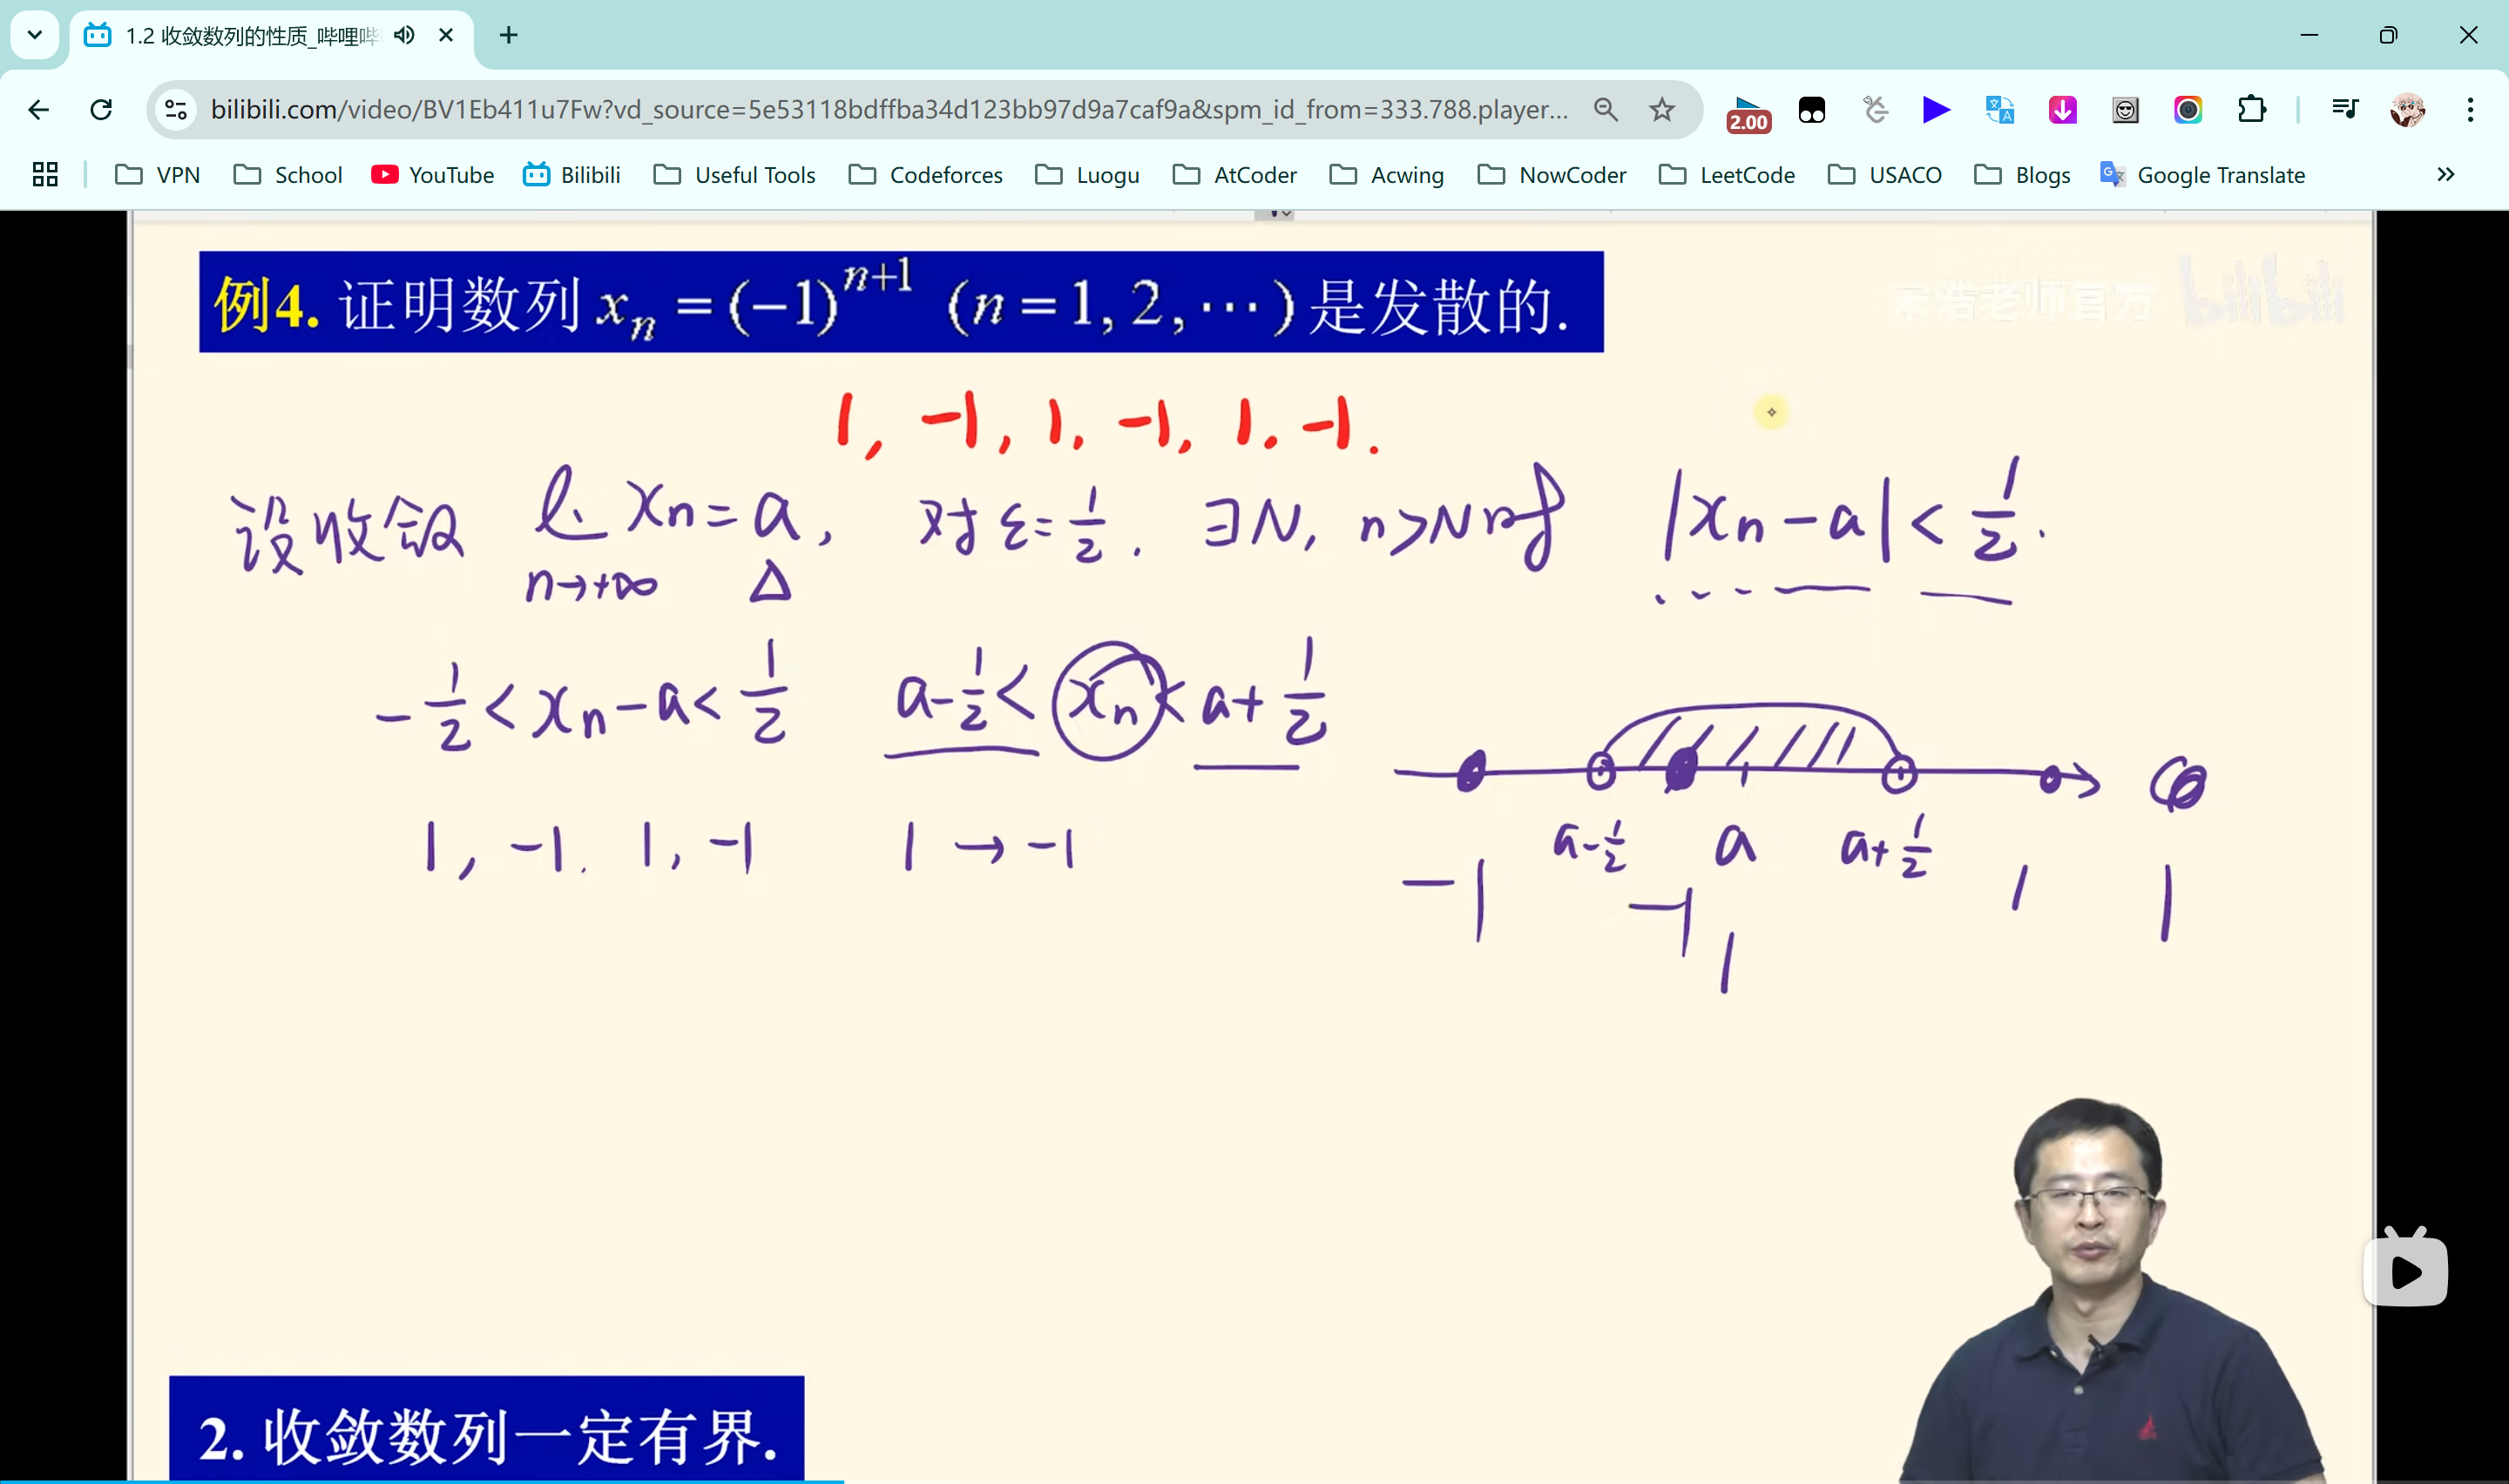 1.2 收敛数列的性质_哔哩哔
bilibili.com/video/BV1Eb411u7Fw?vd_source=5e53118bdffba34d123bb97d9a7caf9a&spm_id_from=333.788.player...
2.00
VPN School YouTube Bilibili Useful Tools Codeforces Luogu AtCoder Acwing NowCoder LeetCode USACO Blogs Google Translate
例4. 证明数列 xₙ = (−1)ⁿ⁺¹ (n = 1, 2, ⋯) 是发散的.
宋浩老师官方 bilibili
1, -1, 1, -1, 1, -1.
设收敛 lim xn = a, 对 ε = 1/2, ∃N, n>N时 |xn - a| < 1/2.
n→+∞ Δ
-1/2 < xn - a < 1/2 a - 1/2 < xn < a + 1/2
1, -1, 1, -1 1 → -1
a - 1/2 a a + 1/2
-1 -1 1 1
1
2. 收敛数列一定有界.